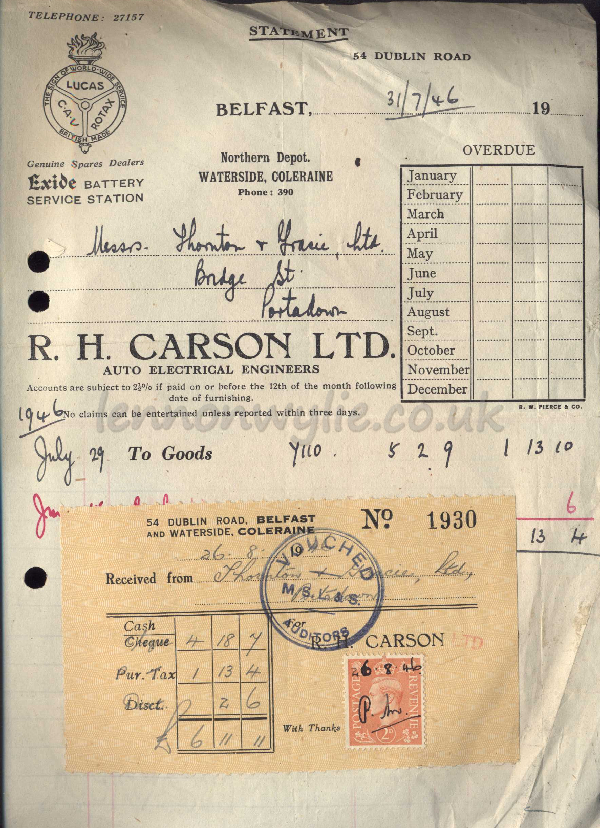 TELEPHONE: 27157
STATEMENT
54 DUBLIN ROAD
THE SIGN OF WORLD-WIDE SERVICE
LUCAS
C·A·V
ROTAX
BRITISH MADE
BELFAST, 31/7/46 19
Genuine Spares Dealers
Exide BATTERY
SERVICE STATION
Northern Depot.
WATERSIDE, COLERAINE
Phone: 390
OVERDUE
January
February
March
April
May
June
July
August
Sept.
October
November
December
R. W. PIERCE & CO.
Messrs. Thornton & Gracie, Ltd.
Bridge St.
Portadown
R. H. CARSON LTD.
AUTO ELECTRICAL ENGINEERS
Accounts are subject to 2½% if paid on or before the 12th of the month following
date of furnishing.
1946 No claims can be entertained unless reported within three days.
lennonwylie.co.uk
July 29 To Goods Y110 5 2 9 1 13 10
6
13 4
54 DUBLIN ROAD, BELFAST
AND WATERSIDE, COLERAINE
No 1930
26.8. 19
Received from Thornton & Gracie, Ltd,
Portadown
VOUCHED
M/S.V. & S.
AUDITORS
For
R. H. CARSON LTD
Cash
Cheque 4 18 7
Pur. Tax 1 13 4
Disct. 2 6
£ 6 11 11
With Thanks
POSTAGE
REVENUE
26 8 46
2D